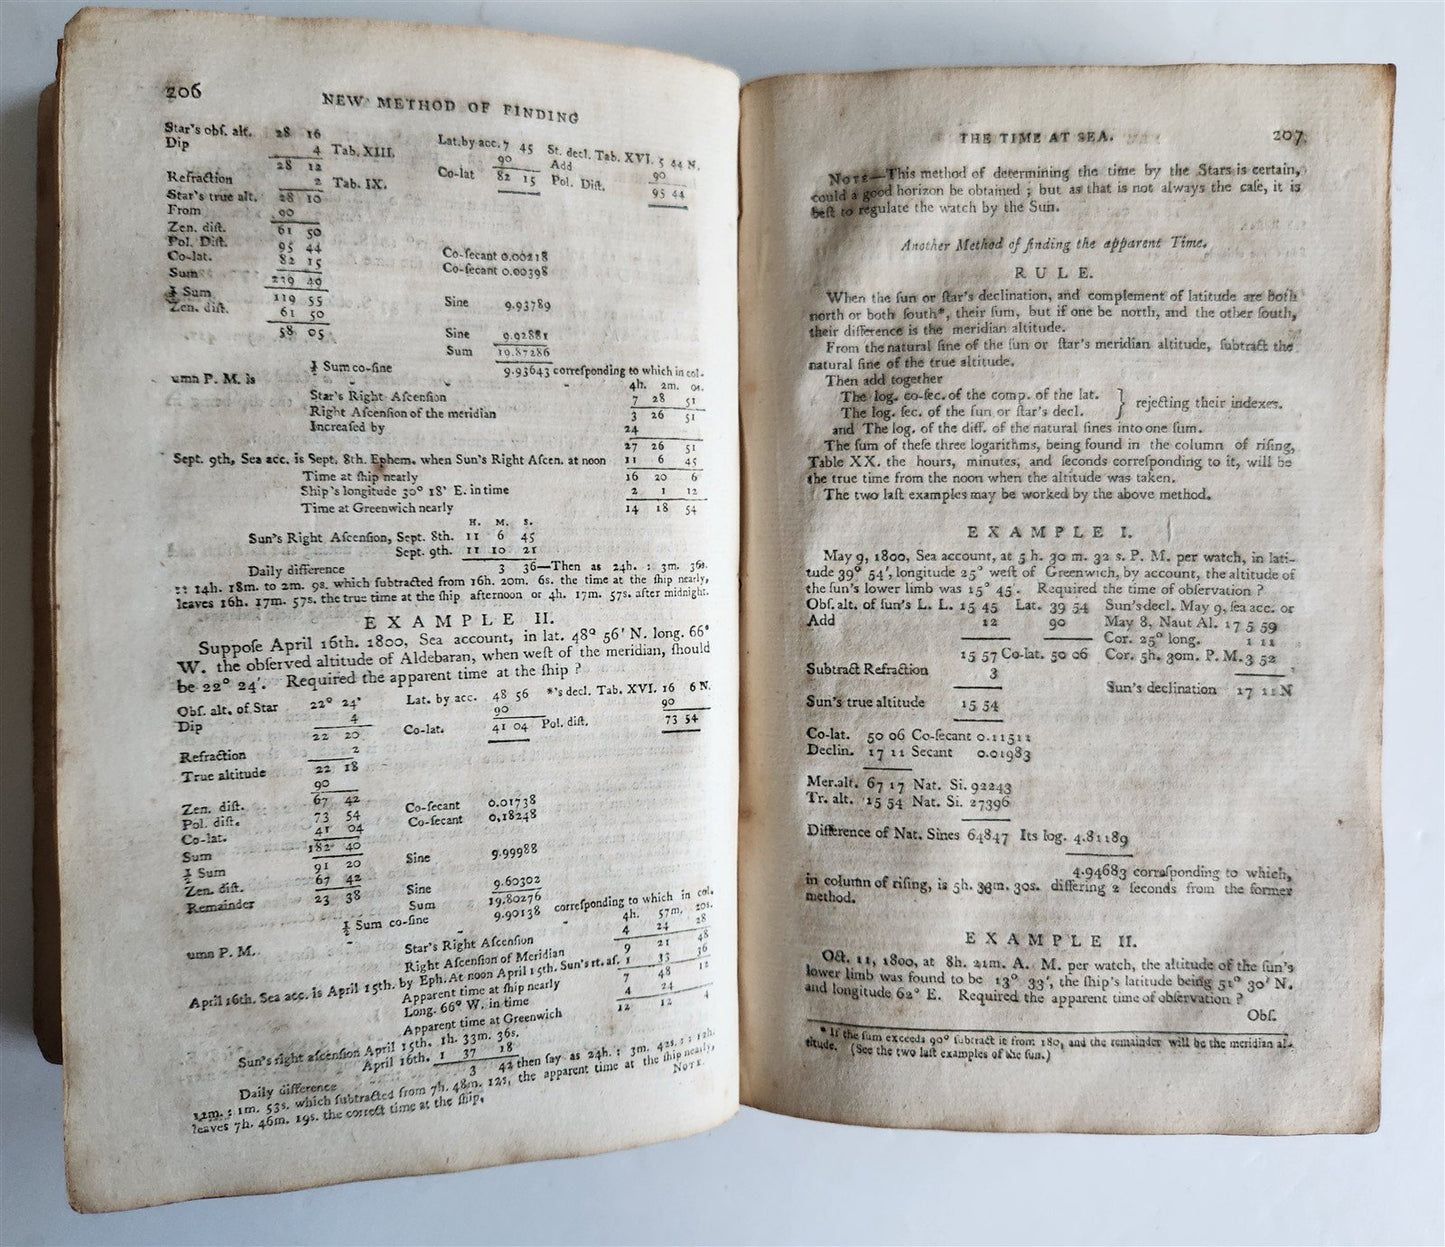 206
NEW METHOD OF FINDING
Star's obſ. alt. 28 16
Dip 4 Tab. XIII.
28 12
Refraction 2 Tab. IX.
Star's true alt. 28 10
From 90
Zen. diſt. 61 50
Pol. Diſt. 95 44
Co-lat. 82 15
Sum 239 49
½ Sum 119 55
Zen. diſt. 61 50
58 05
Lat. by acc. 7 45 St. decl. Tab. XVI. 5 44 N.
90 Add 90
Co-lat 82 15 Pol. Diſt. 95 44
Co-ſecant 0.00218
Co-ſecant 0.00398
Sine 9.93789
Sine 9.92881
Sum 19.87286
½ Sum co-ſine 9.93643 correſponding to which in col.
umn P. M. is 4h. 2m. 0s.
Star's Right Aſcenſion 7 28 51
Right Aſcenſion of the meridian 3 26 51
Increaſed by 24
27 26 51
Sept. 9th, Sea acc. is Sept. 8th. Ephem. when Sun's Right Aſcen. at noon 11 6 45
Time at ſhip nearly 16 20 6
Ship's longitude 30° 18' E. in time 2 1 12
Time at Greenwich nearly 14 18 54
H. M. S.
Sun's Right Aſcenſion, Sept. 8th. 11 6 45
Sept. 9th. 11 10 21
Daily difference 3 36—Then as 24h. : 3m. 36s.
:: 14h. 18m. to 2m. 9s. which ſubtracted from 16h. 20m. 6s. the time at the ſhip nearly,
leaves 16h. 17m. 57s. the true time at the ſhip afternoon or 4h. 17m. 57s. after midnight.
EXAMPLE II.
Suppoſe April 16th. 1800, Sea account, in lat. 48° 56' N. long. 66°
W. the obſerved altitude of Aldebaran, when weſt of the meridian, ſhould
be 22° 24'. Required the apparent time at the ſhip ?
Obſ. alt. of Star 22° 24'
Dip 4
22 20
Refraction 2
True altitude 22 18
90
Zen. diſt. 67 42
Pol. diſt. 73 54
Co-lat. 41 04
Sum 182 40
½ Sum 91 20
Zen. diſt. 67 42
Remainder 23 38
Lat. by acc. 48 56 *'s decl. Tab. XVI. 16 6 N.
90 90
Co-lat. 41 04 Pol. diſt. 73 54
Co-ſecant 0.01738
Co-ſecant 0,18248
Sine 9.99988
Sine 9.60302
Sum 19.80276
½ Sum co-ſine 9.90138 correſponding to which in col.
umn P. M. 4h. 57m. 20s.
Star's Right Aſcenſion 4 24 28
Right Aſcenſion of Meridian 9 21 48
April 16th. Sea acc. is April 15th. by Eph. At noon April 15th. Sun's rt. aſ. 1 33 36
Apparent time at ſhip nearly 7 48 12
Long. 66° W. in time 4 24
Apparent time at Greenwich 12 12
Sun's right aſcenſion April 15th. 1h. 33m. 36s.
April 16th. 1 37 18
Daily difference 3 42 then ſay as 24h. : 3m. 42s. : : 12h.
12m. : 1m. 53s. which ſubtracted from 7h. 48m. 12s, the apparent time at the ſhip nearly,
leaves 7h. 46m. 19s. the correct time at the ſhip.
NOTE.
THE TIME AT SEA. 207
NOTE—This method of determining the time by the Stars is certain,
could a good horizon be obtained ; but as that is not always the caſe, it is
beſt to regulate the watch by the Sun.
Another Method of finding the apparent Time.
RULE.
When the ſun or ſtar's declination, and complement of latitude are both
north or both ſouth*, their ſum, but if one be north, and the other ſouth,
their difference is the meridian altitude.
From the natural ſine of the ſun or ſtar's meridian altitude, ſubtract the
natural ſine of the true altitude.
Then add together
The log. co-ſec. of the comp. of the lat.
The log. ſec. of the ſun or ſtar's decl. } rejecting their indexes.
and The log. of the diff. of the natural ſines into one ſum.
The ſum of theſe three logarithms, being found in the column of riſing,
Table XX. the hours, minutes, and ſeconds correſponding to it, will be
the true time from the noon when the altitude was taken.
The two laſt examples may be worked by the above method.
EXAMPLE I.
May 9, 1800, Sea account, at 5 h. 30 m. 32 s. P. M. per watch, in lati-
tude 39° 54', longitude 25° weſt of Greenwich, by account, the altitude of
the ſun's lower limb was 15° 45'. Required the time of obſervation ?
Obſ. alt. of ſun's L. L. 15 45 Lat. 39 54 Sun's decl. May 9, ſea acc. or
Add 12 90 May 8, Naut Al. 17 5 59
Cor. 25° long. 1 11
15 57 Co-lat. 50 06 Cor. 5h. 30m. P. M. 3 52
Subtract Refraction 3
Sun's declination 17 11 N
Sun's true altitude 15 54
Co-lat. 50 06 Co-ſecant 0.11511
Declin. 17 11 Secant 0.01983
Mer. alt. 67 17 Nat. Si. 92243
Tr. alt. 15 54 Nat. Si. 27396
Difference of Nat. Sines 64847 Its log. 4.81189
4.94683 correſponding to which,
in column of riſing, is 5h. 33m. 30s. differing 2 ſeconds from the former
method.
EXAMPLE II.
Oct. 11, 1800, at 8h. 21m. A. M. per watch, the altitude of the ſun's
lower limb was found to be 13° 33', the ſhip's latitude being 51° 30' N.
and longitude 62° E. Required the apparent time of obſervation ?
Obſ.
* If the ſum exceeds 90° ſubtract it from 180, and the remainder will be the meridian al-
titude. (See the two laſt examples of the ſun.)